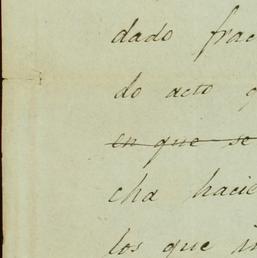 dado frac
do acto
en que se
cha hacie
los que in